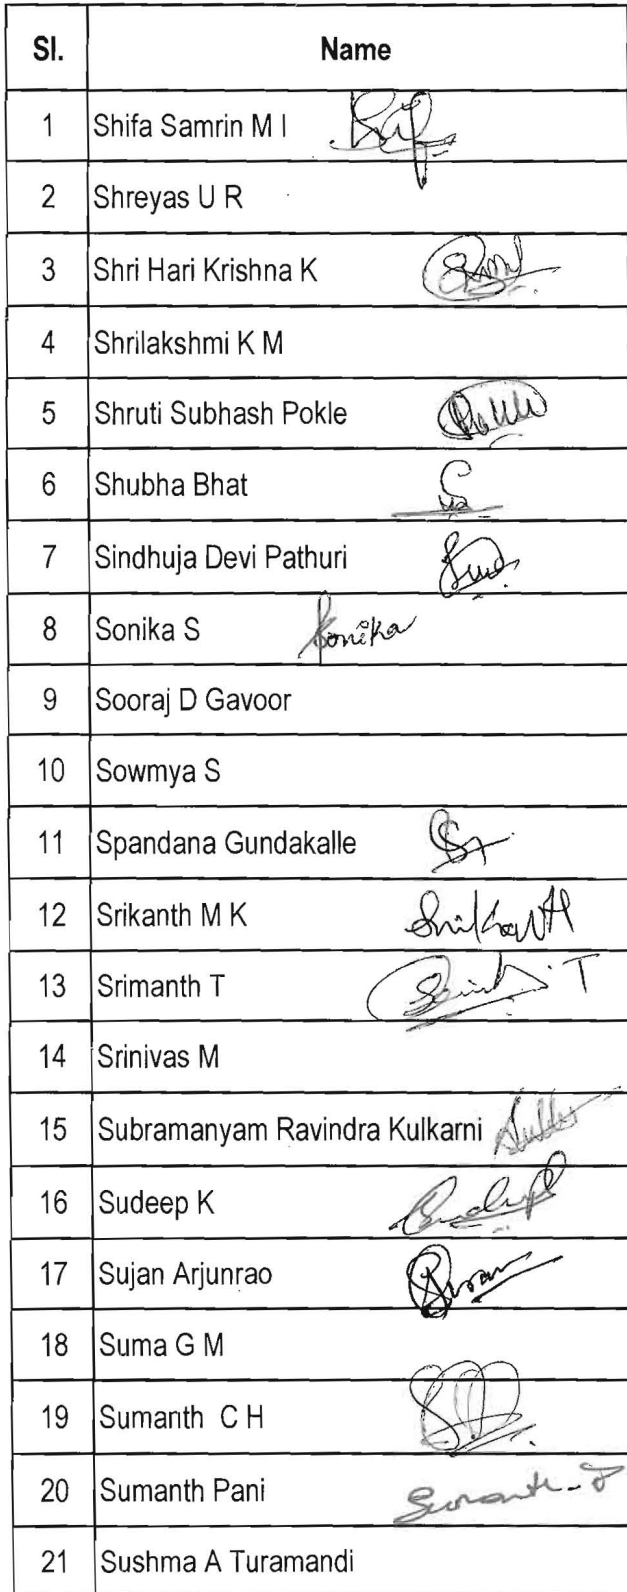 Sl. Name
1 Shifa Samrin M I
2 Shreyas U R
3 Shri Hari Krishna K
4 Shrilakshmi K M
5 Shruti Subhash Pokle
6 Shubha Bhat
7 Sindhuja Devi Pathuri
8 Sonika S Sonika
9 Sooraj D Gavoor
10 Sowmya S
11 Spandana Gundakalle
12 Srikanth M K Srikanth
13 Srimanth T
14 Srinivas M
15 Subramanyam Ravindra Kulkarni
16 Sudeep K
17 Sujan Arjunrao
18 Suma G M
19 Sumanth C H
20 Sumanth Pani Sumanth.P
21 Sushma A Turamandi